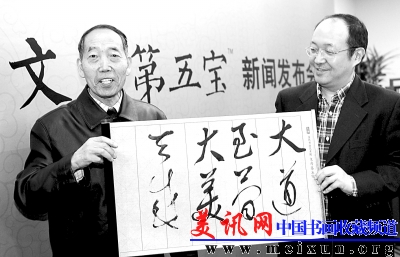 文 第五宝™ 新闻发布会
大道
至简
大美
美讯网 中国书画收藏频道
www.meixun.org